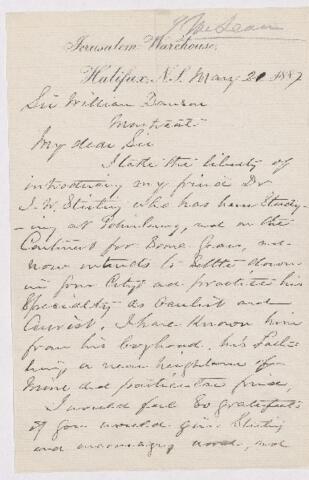 J McLean
Jerusalem Warehouse,
Halifax, N.S. May 21 1887
Sir William Dawson
Montreal
My dear Sir
I take the liberty of
introducing my friend Dr
J. W. Stirling who has been Study-
-ing at Edinburg, and on the
Continent for Some Years, and
now intends to Settle down
in your City and practice his
Speciality as Oculist and
Aurist. I have Known him
from his boyhood, his Father
being a near neighbour of
mine and particular friend,
I would feel So grateful
if you would give Stirling
and encouraging word, and